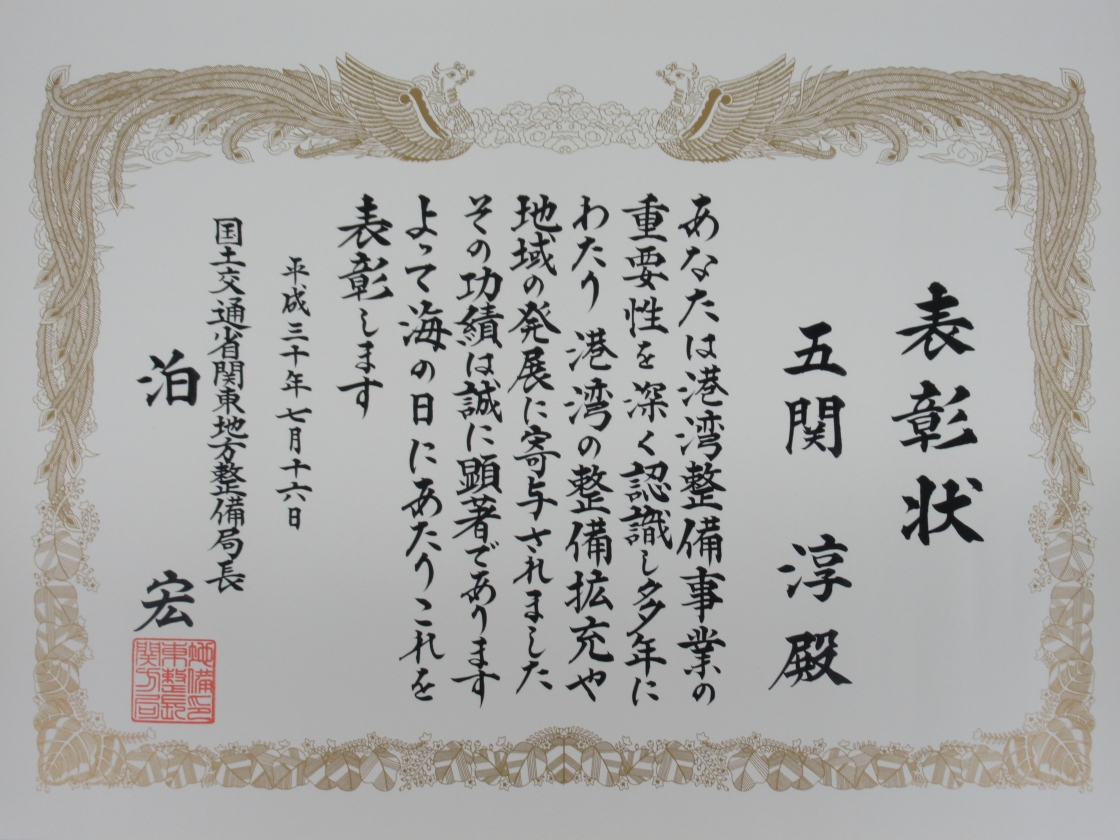 表彰状
五關 淳殿
あなたは港湾整備事業の
重要性を深く認識し多年に
わたり港湾の整備拡充や
地域の発展に寄与されました
その功績は誠に顕著であります
よって海の日にあたりこれを
表彰します
平成三十年七月十六日
国土交通省関東地方整備局長
泊 宏